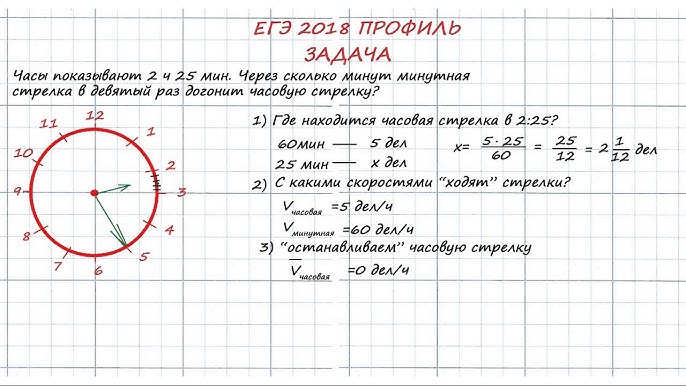 ЕГЭ 2018 ПРОФИЛЬ
ЗАДАЧА
Часы показывают 2 ч 25 мин. Через сколько минут минутная
стрелка в девятый раз догонит часовую стрелку?
12
11
1
10
2
9
3
8
4
7
5
6
1) Где находится часовая стрелка в 2:25?
60мин — 5 дел
25 мин — x дел
x= 5·25/60 = 25/12 = 2 1/12 дел
2) С какими скоростями "ходят" стрелки?
Vчасовая =5 дел/ч
Vминутная =60 дел/ч
3) "останавливаем" часовую стрелку
V̅часовая =0 дел/ч